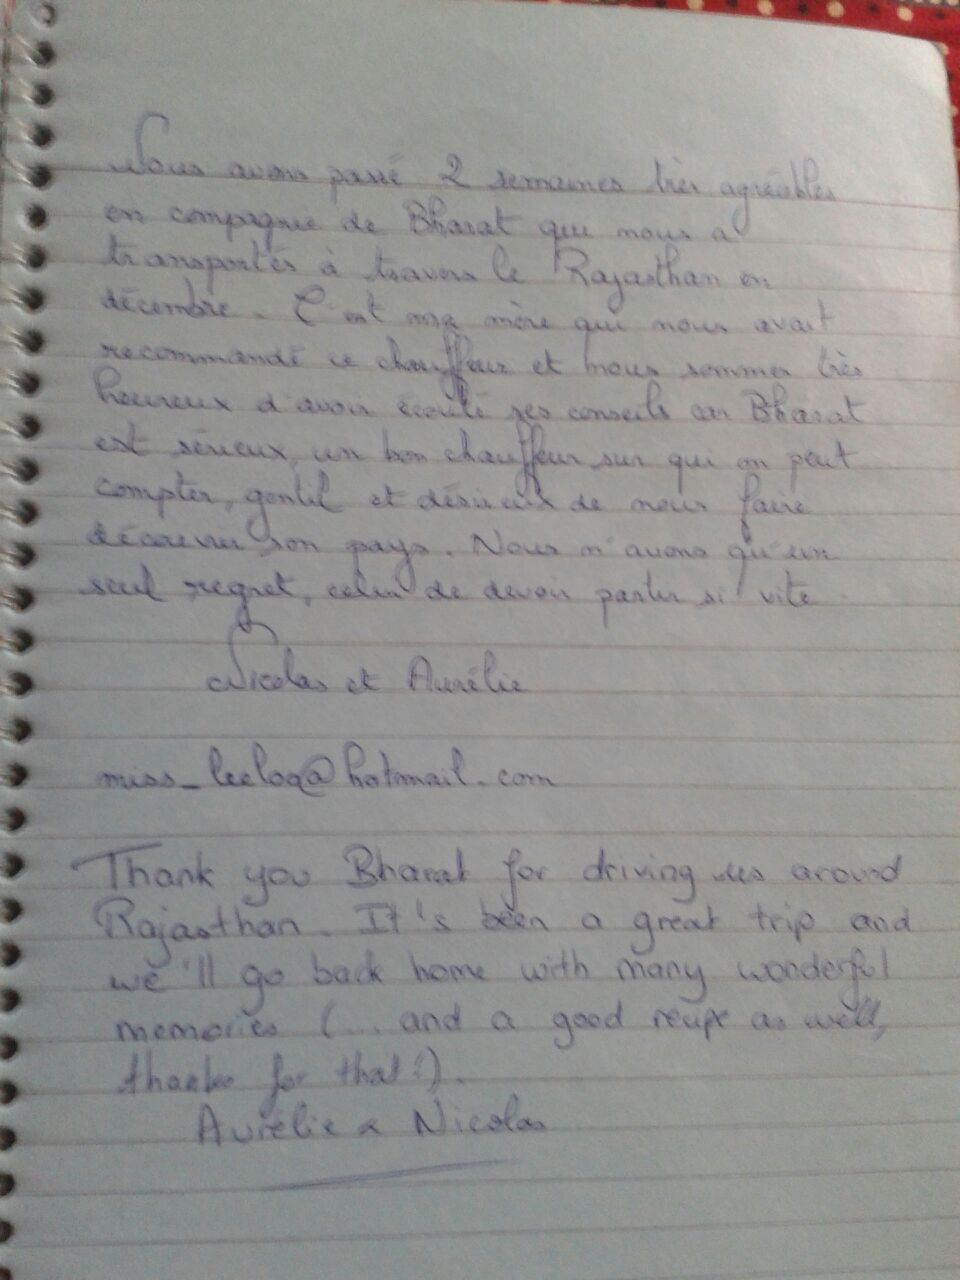 Nous avons passé 2 semaines très agréables
en compagnie de Bharat qui nous a
transportés à travers le Rajasthan en
décembre. C'est ma mère qui nous avait
recommandé ce chauffeur et nous sommes très
heureux d'avoir écouté ses conseils car Bharat
est sérieux, un bon chauffeur sur qui on peut
compter, gentil et désireux de nous faire
découvrir son pays. Nous n'avons qu'un
seul regret, celui de devoir partir si vite
Nicolas et Aurélie
miss_leeloo@hotmail.com
Thank you Bharat for driving us around
Rajasthan. It's been a great trip and
we'll go back home with many wonderful
memories (... and a good recipe as well,
thanks for that!).
Aurélie & Nicolas